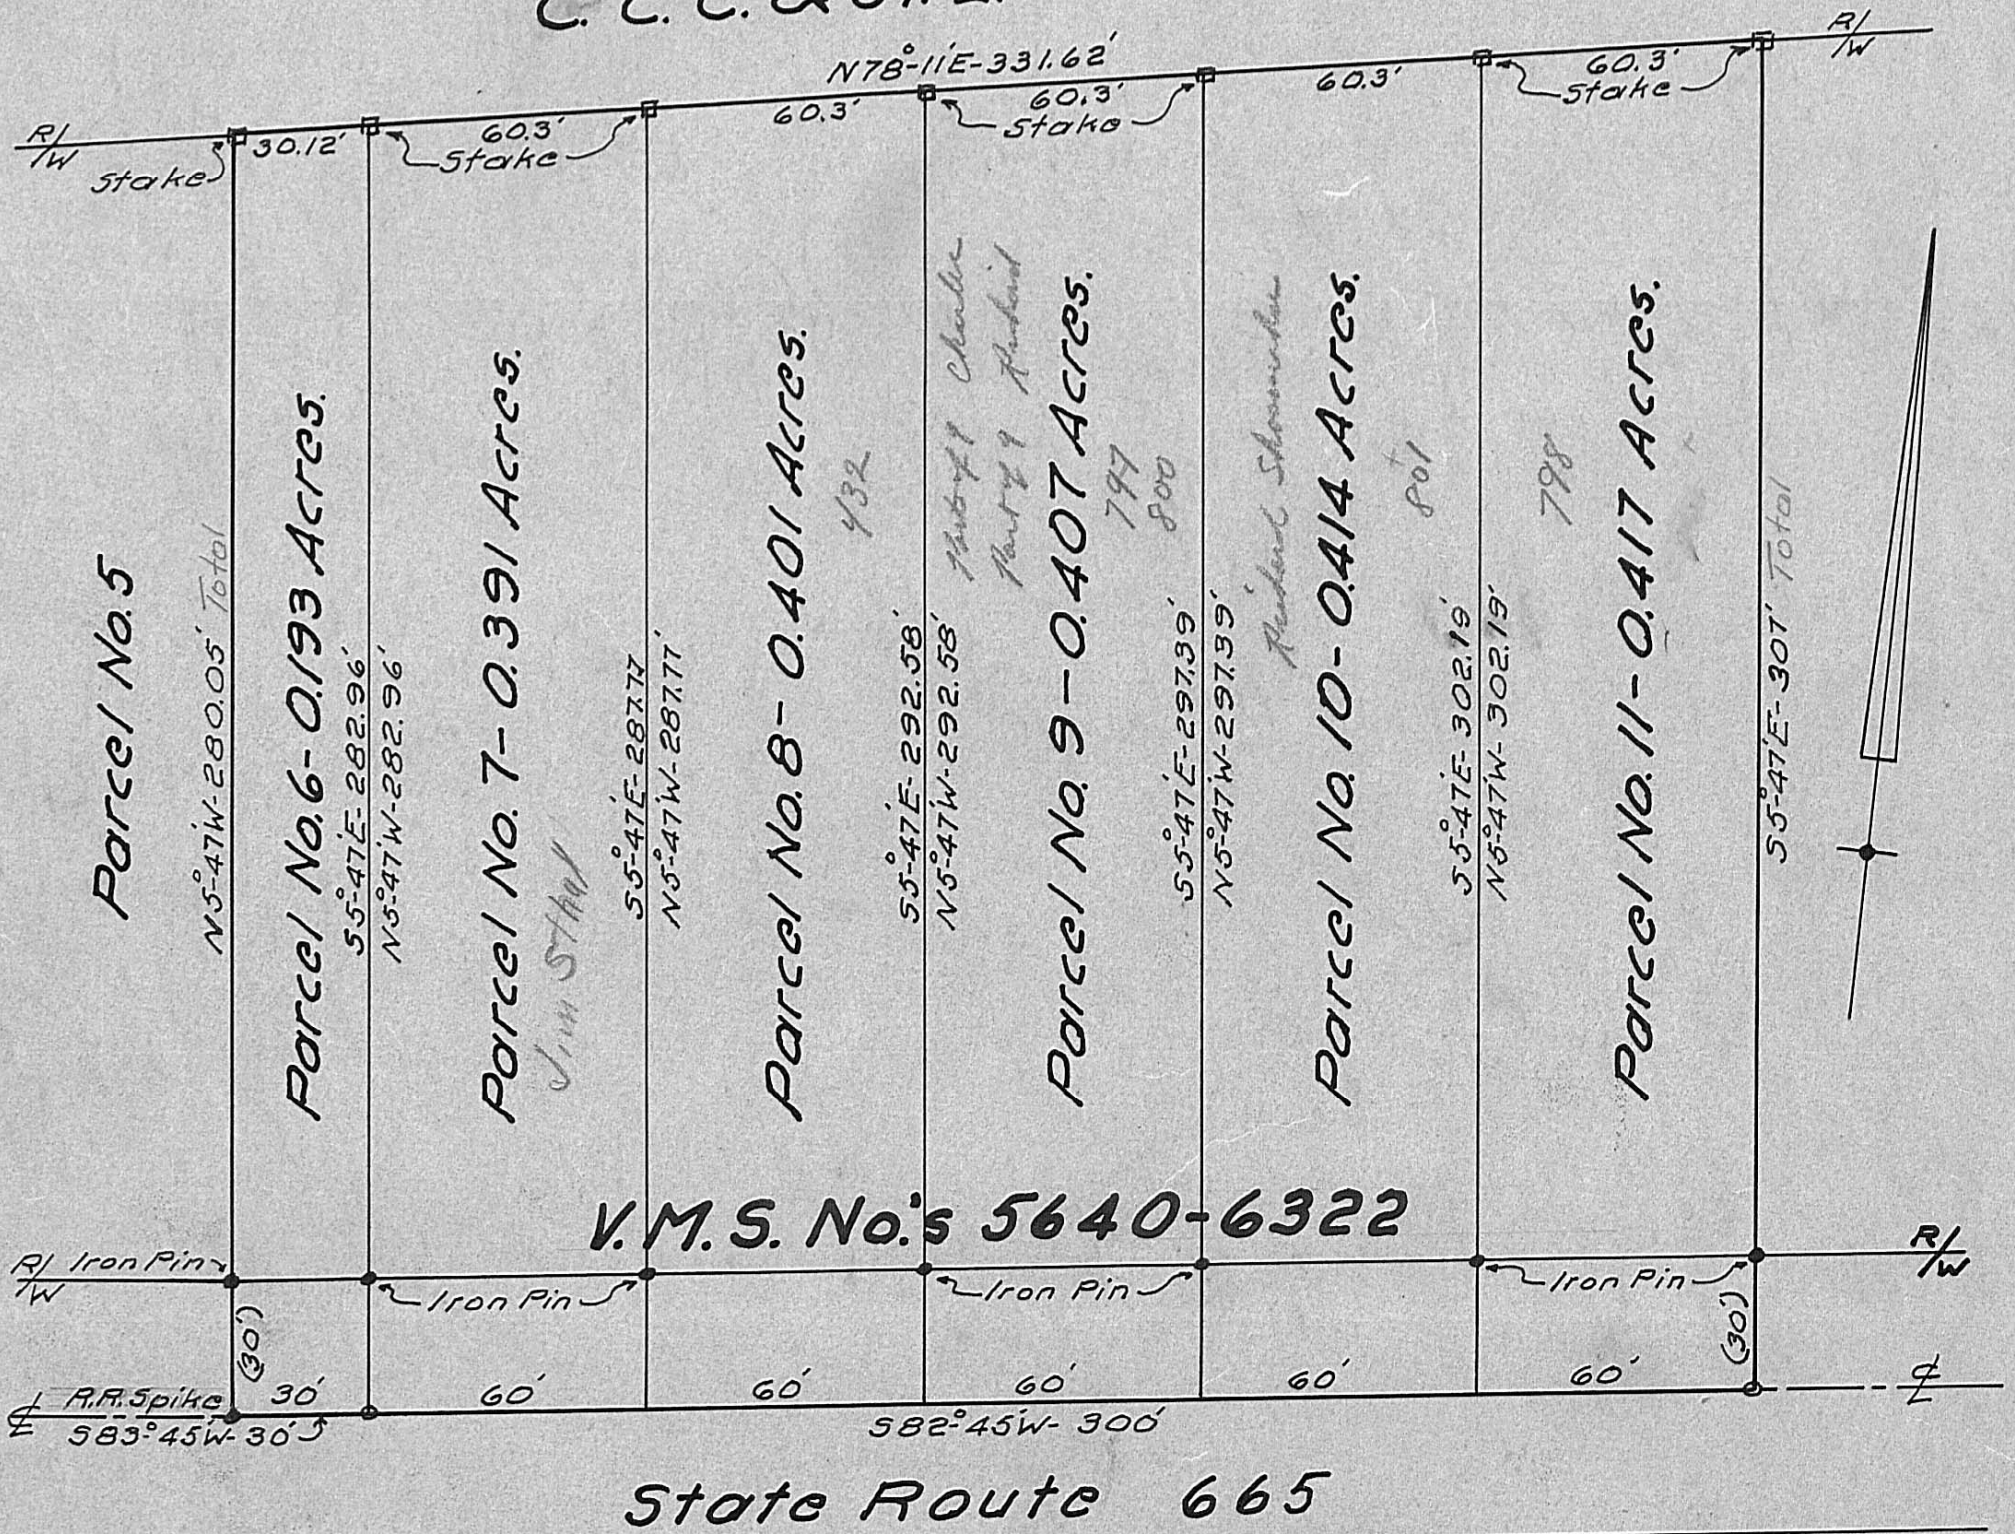 N78°-11'E-331.62'
R/W
R/W
30.12'
60.3'
60.3'
60.3'
60.3'
60.3'
Stake
Stake
Stake
Stake
Parcel No.5
N5°-47'W-280.05' Total
Parcel No.6-0.193 Acres.
S5°-47'E-282.96'
N5°-47'W-282.96'
Parcel No.7-0.391 Acres.
Jim Sthal
S5°-47'E-287.77'
N5°-47'W-287.77'
Parcel No.8-0.401 Acres.
432
S5°-47'E-292.58'
N5°-47'W-292.58'
Part of 9
Part of 9 Richard
Parcel No.9-0.407 Acres.
797
800
S5°-47'E-297.39'
N5°-47'W-297.39'
Richard Shoemaker
Parcel No.10-0.414 Acres.
801
S5°-47'E-302.19'
N5°-47'W-302.19'
798
Parcel No.11-0.417 Acres.
S5°-47'E-307' Total
V.M.S. No.'s 5640-6322
R/W Iron Pin
Iron Pin
Iron Pin
Iron Pin
R/W
(30')
(30')
℄ R.R.Spike
30'
60'
60'
60'
60'
60'
℄
S83°-45'W-30'
S82°-45'W-300'
State Route 665